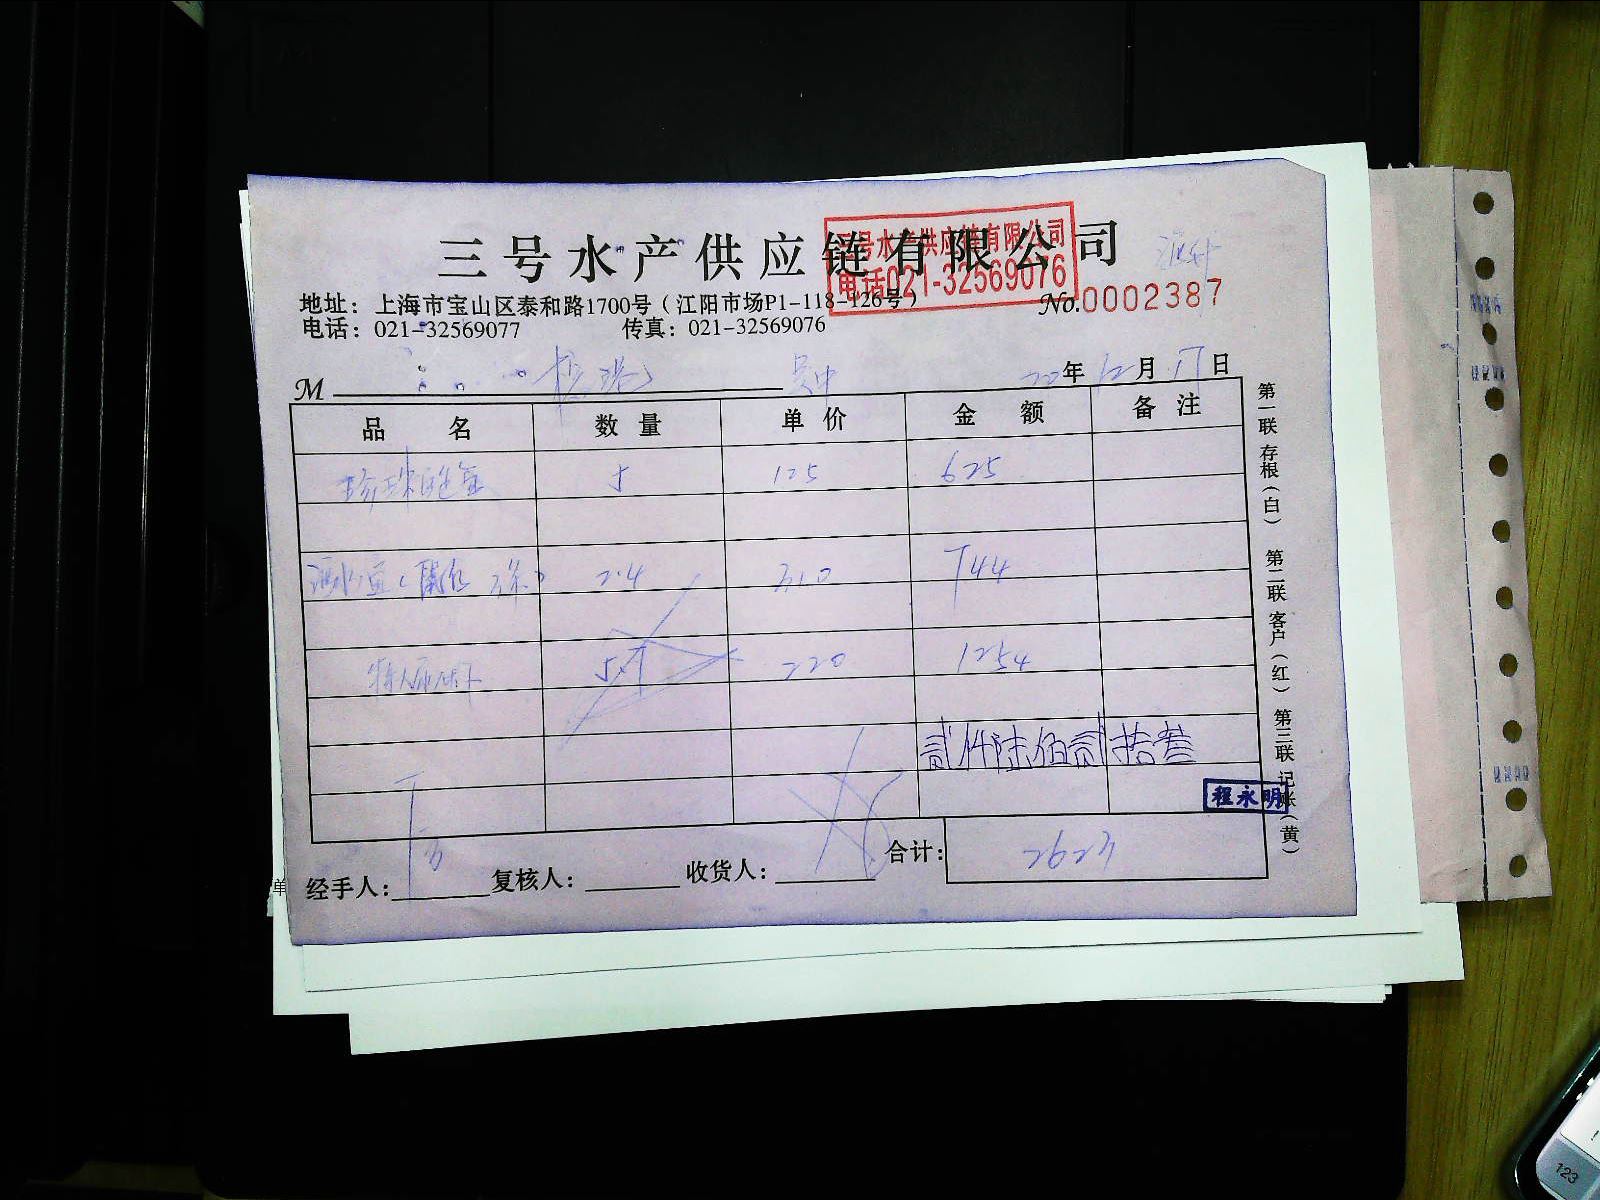 三号水产供应链有限公司
三号水产供应链有限公司
电话021-32569076
地址：上海市宝山区泰和路1700号（江阳市场P1-118-126号）
No.0002387
电话：021-32569077 传真：021-32569076
M
22年12月17日
品 名 数 量 单 价 金 额 备 注
珍珠 5 125 625
2.4 310 744
5.7 220 1254
贰仟陆佰贰拾叁
程永明
合计：2623
经手人： 复核人： 收货人：
第一联 存根（白） 第二联 客户（红） 第三联 记账（黄）
123